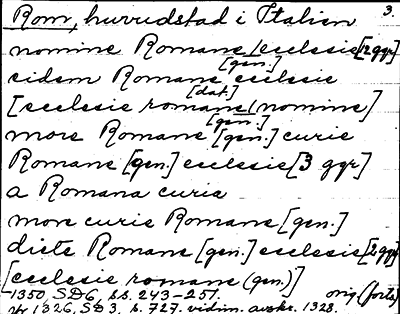 Rom, huvudstad i Italien 3.
nomine Romane ecclesie [2 ggr]
[gen.]
eidem Romane ecclesie
[dat.]
[ecclesie romane (nomine)]
[gen.]
more Romane [gen.] curie
Romane [gen.] ecclesie [3 ggr]
a Romana curia
more curie Romane [gen.]
dicte Romane [gen.] ecclesie [2 ggr]
[ecclesie romane (gen.)]
1350, SD6, s.s. 243-251. orig. (forts)
1326, SD3, s. 727. vidim. avskr. 1328.